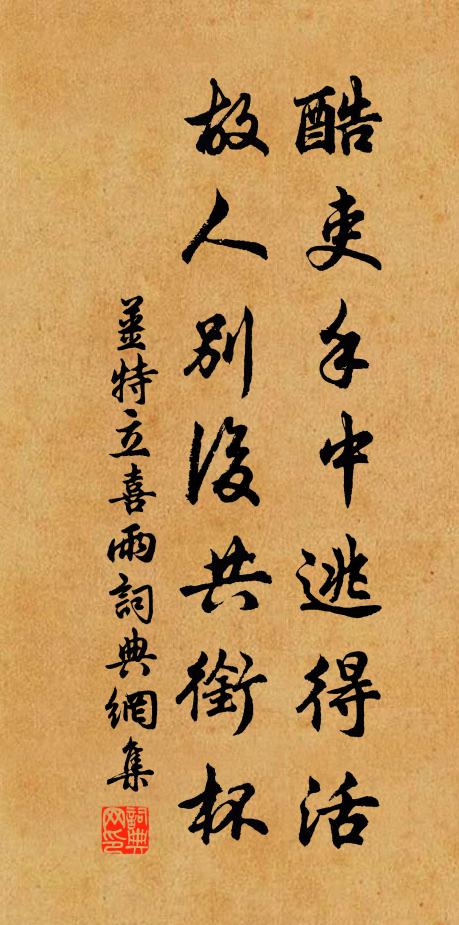 酷吏手中逃得活
故人別後共銜杯
姜特立喜雨詞典網集
詞典网印